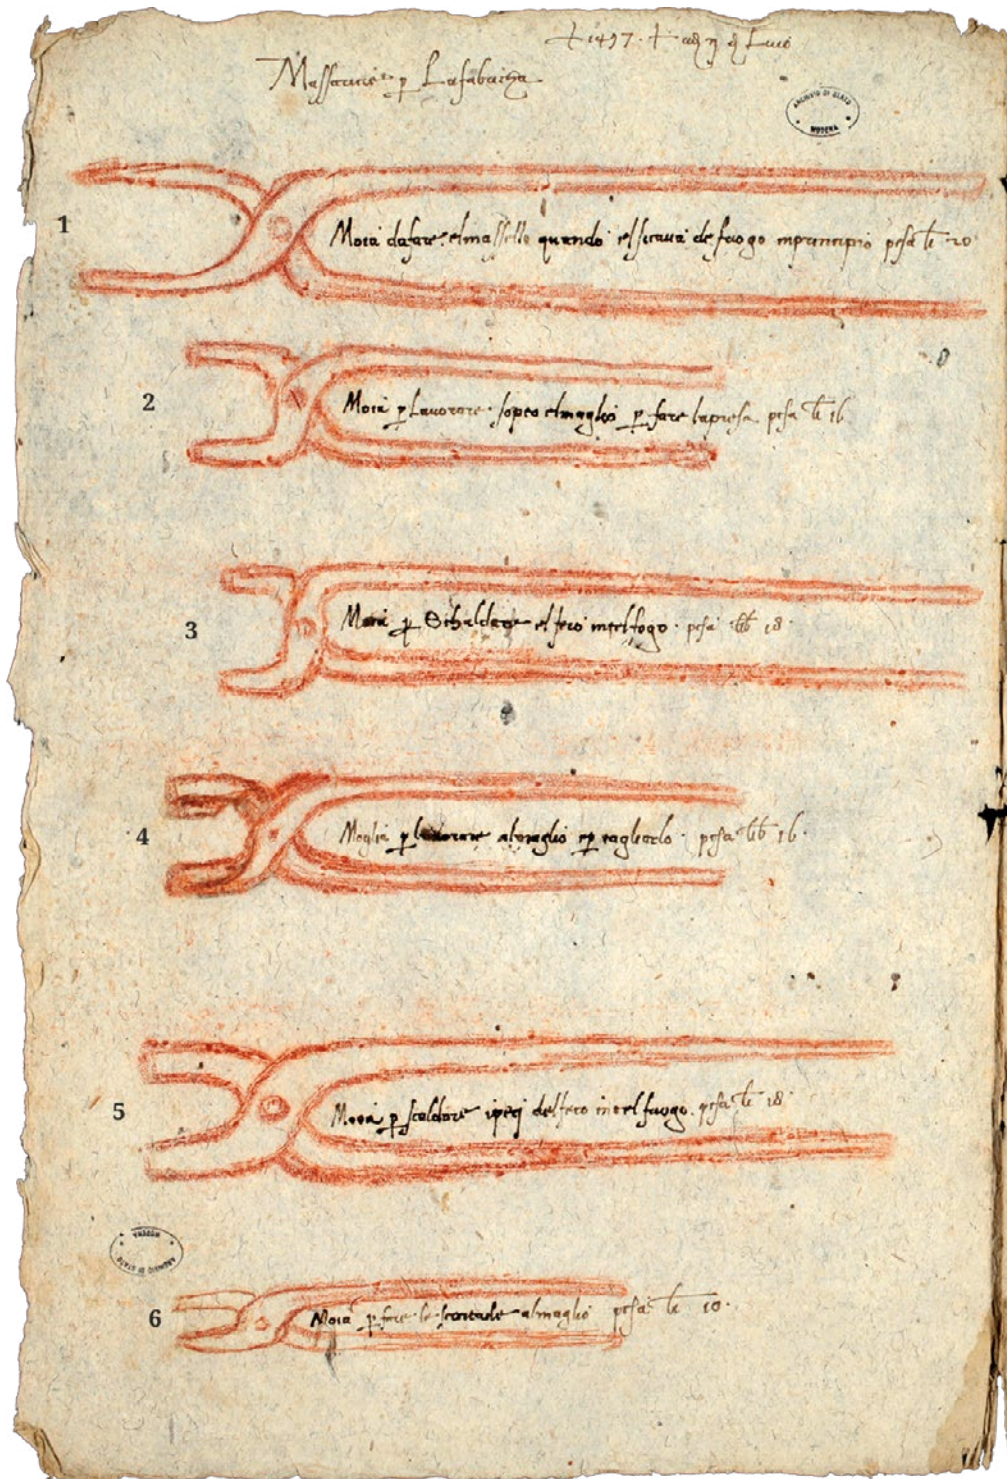 + 1497 + adi
Massarie p La fabricha
ARCHIVIO DI STATO
MODENA
1
Moia dafare elmassello quando elsicava de fuogo inprincipio pesa li 20
2
Moia p Lavorare sopro elmaglio p fare lapresa pesa li 16
3
Moia p Schaldare el fero inelfogo pesa lib 18
4
Moglia p lavorare almaglio ep tagliarlo pesa lib 16
5
Moia p scaldare ipezi delfero inelfuogo pesa li 18
ARCHIVIO DI STATO
MODENA
6
Moia p fare le almaglio pesa li 10